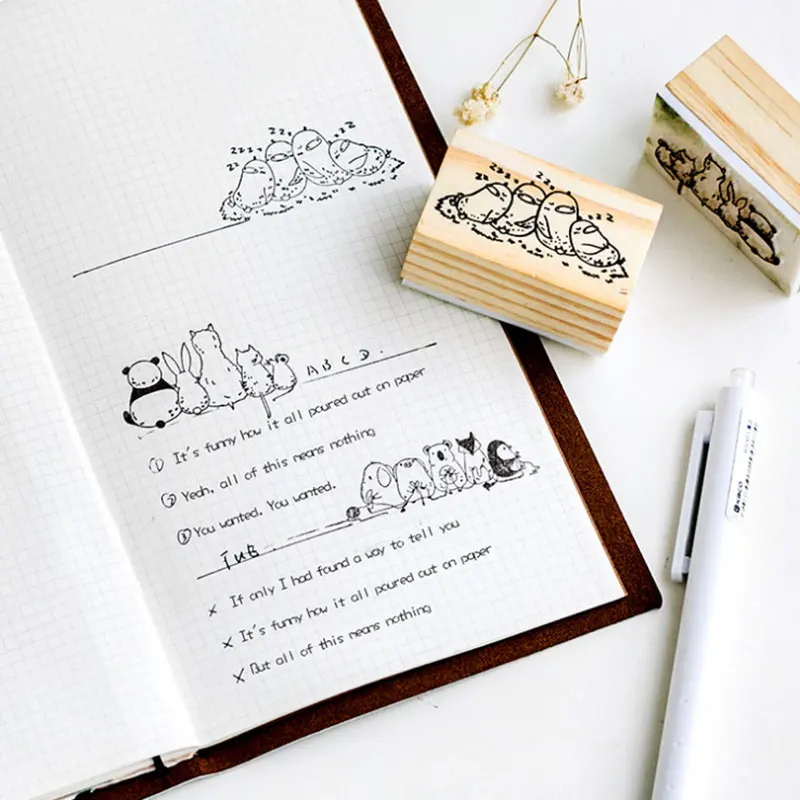 zz zzz zzz
zz
A B C D.
① It's funny how it all poured out on paper
② Yeah, all of this means nothing
③ You wanted. You wanted.
TUB.
x If only I had found a way to tell you
x It's funny how it all poured out on paper
x But all of this means nothing
zz zzz zz zzz
KACO